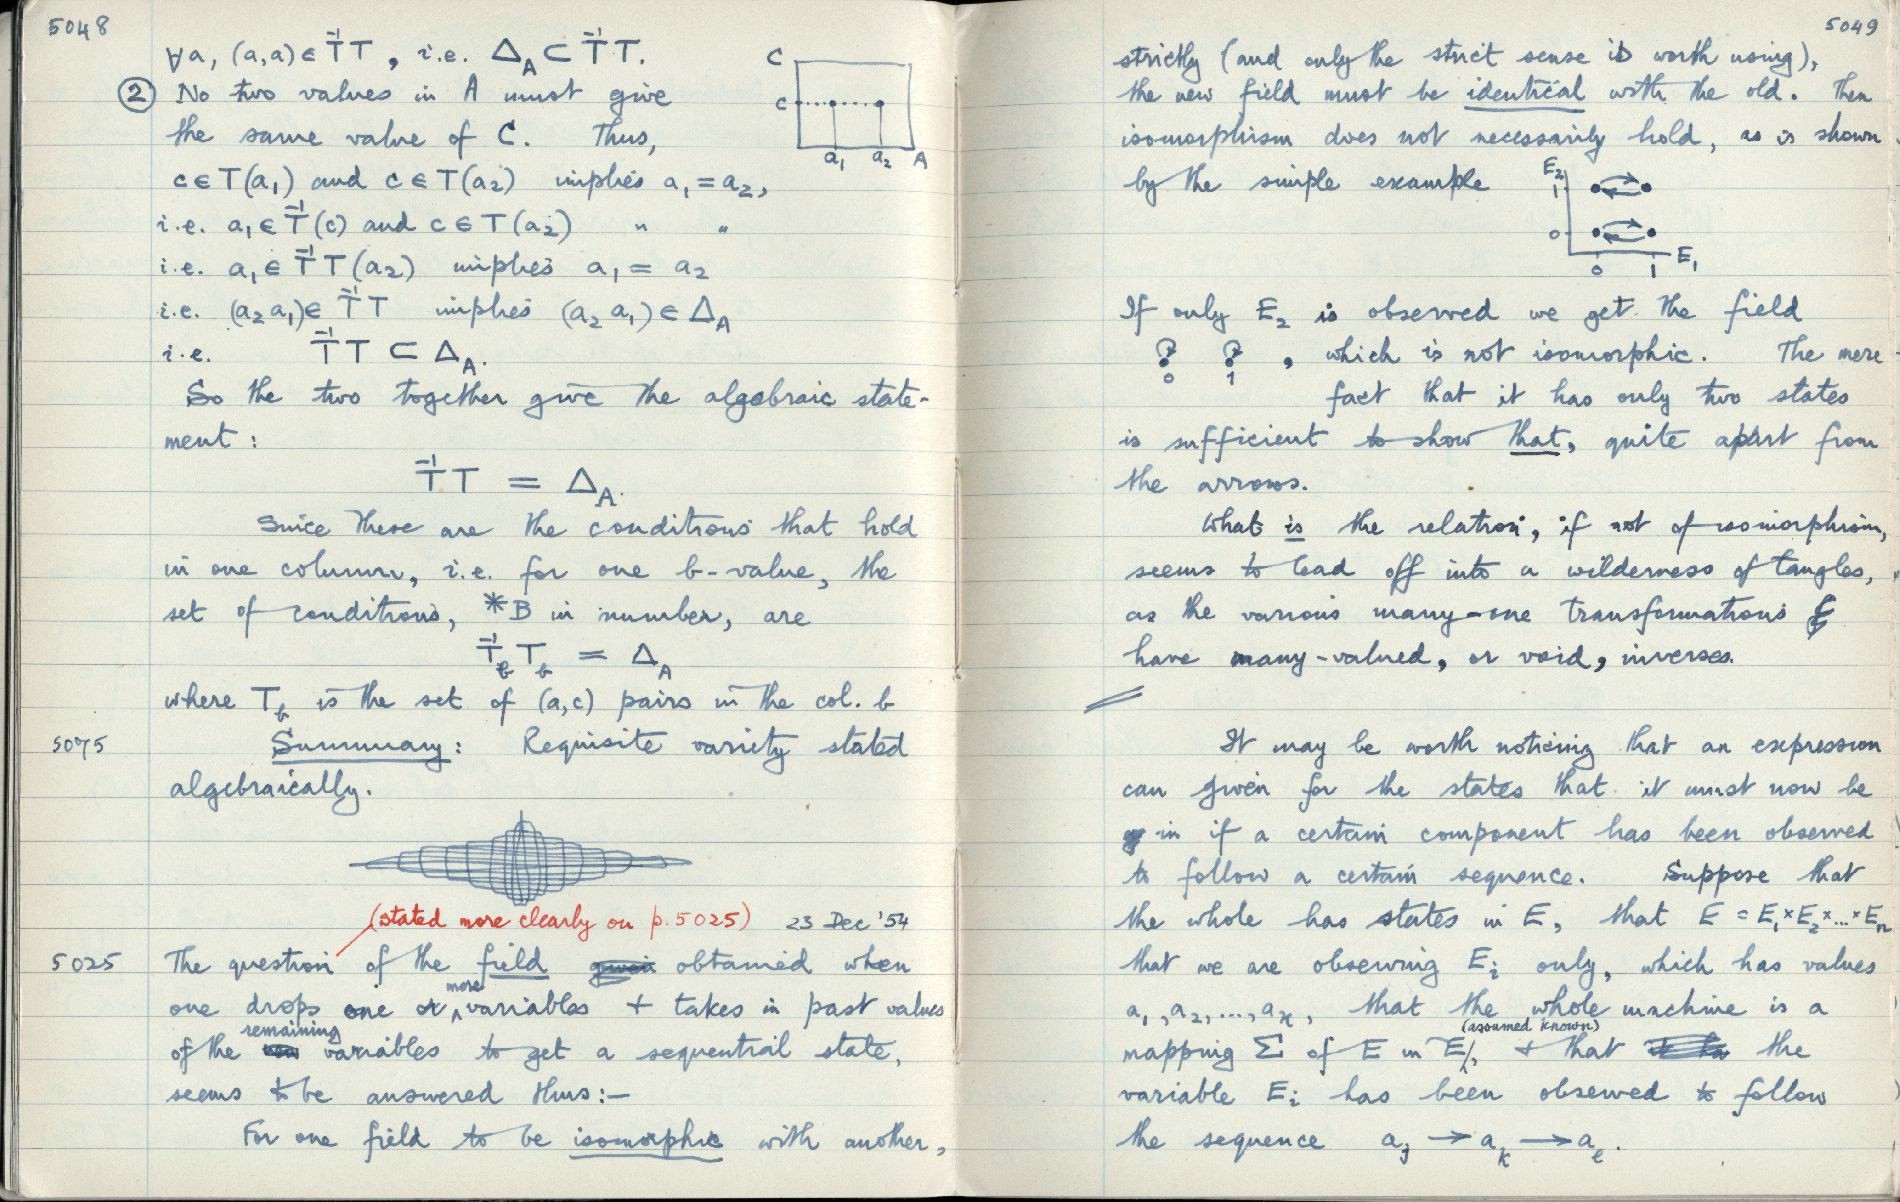 5048
∀a, (a,a) ∈ T⁻¹T, i.e. Δ_A ⊂ T⁻¹T.
② No two values in A must give
the same value of C. Thus,
c ∈ T(a₁) and c ∈ T(a₂) implies a₁ = a₂,
i.e. a₁ ∈ T⁻¹(c) and c ∈ T(a₂) " "
i.e. a₁ ∈ T⁻¹T(a₂) implies a₁ = a₂
i.e. (a₂ a₁) ∈ T⁻¹T implies (a₂ a₁) ∈ Δ_A
i.e. T⁻¹T ⊂ Δ_A.
C
c
a₁ a₂ A
So the two together give the algebraic state-
ment:
T⁻¹T = Δ_A.
Since these are the conditions that hold
in one column, i.e. for one b-value, the
set of conditions, *B in number, are
T⁻¹_b T_b = Δ_A
where T_b is the set of (a,c) pairs in the col. b
5075 Summary: Requisite variety stated
algebraically.
(stated more clearly on p. 5025) 23 Dec '54
5025 The question of the field obtained when
one drops one or more variables + takes in past values
of the remaining variables to get a sequential state,
seems to be answered thus:—
For one field to be isomorphic with another,
5049
strictly (and only the strict sense is worth using),
the new field must be identical with the old. Then
isomorphism does not necessarily hold, as is shown
by the simple example
E₂
1
0
0 1 E₁
If only E₂ is observed we get the field
0 1 , which is not isomorphic. The mere
fact that it has only two states
is sufficient to show that, quite apart from
the arrows.
What is the relation, if not of isomorphism,
seems to lead off into a wilderness of tangles,
as the various many-one transformations
have many-valued, or void, inverses.
It may be worth noticing that an expression
can given for the states that it must now be
in if a certain component has been observed
to follow a certain sequence. Suppose that
the whole has states in E, that E = E₁×E₂×...×Eₙ
that we are observing E_i only, which has values
a₁, a₂, ..., aₓ, that the whole machine is a
mapping Σ of E in E (assumed known), + that the
variable E_i has been observed to follow
the sequence a_j → a_k → a_l.